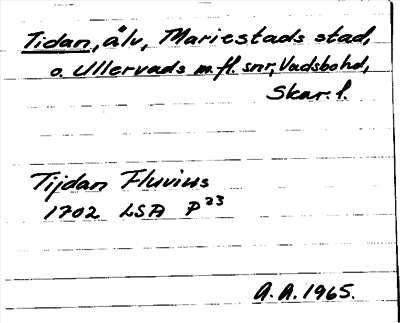 Tidan, älv, Mariestads stad,
o. Ullervads m.fl. snr, Vadsbohd,
Skar. l.
Tijdan Fluvius
1702 LSA P23
A.A. 1965.